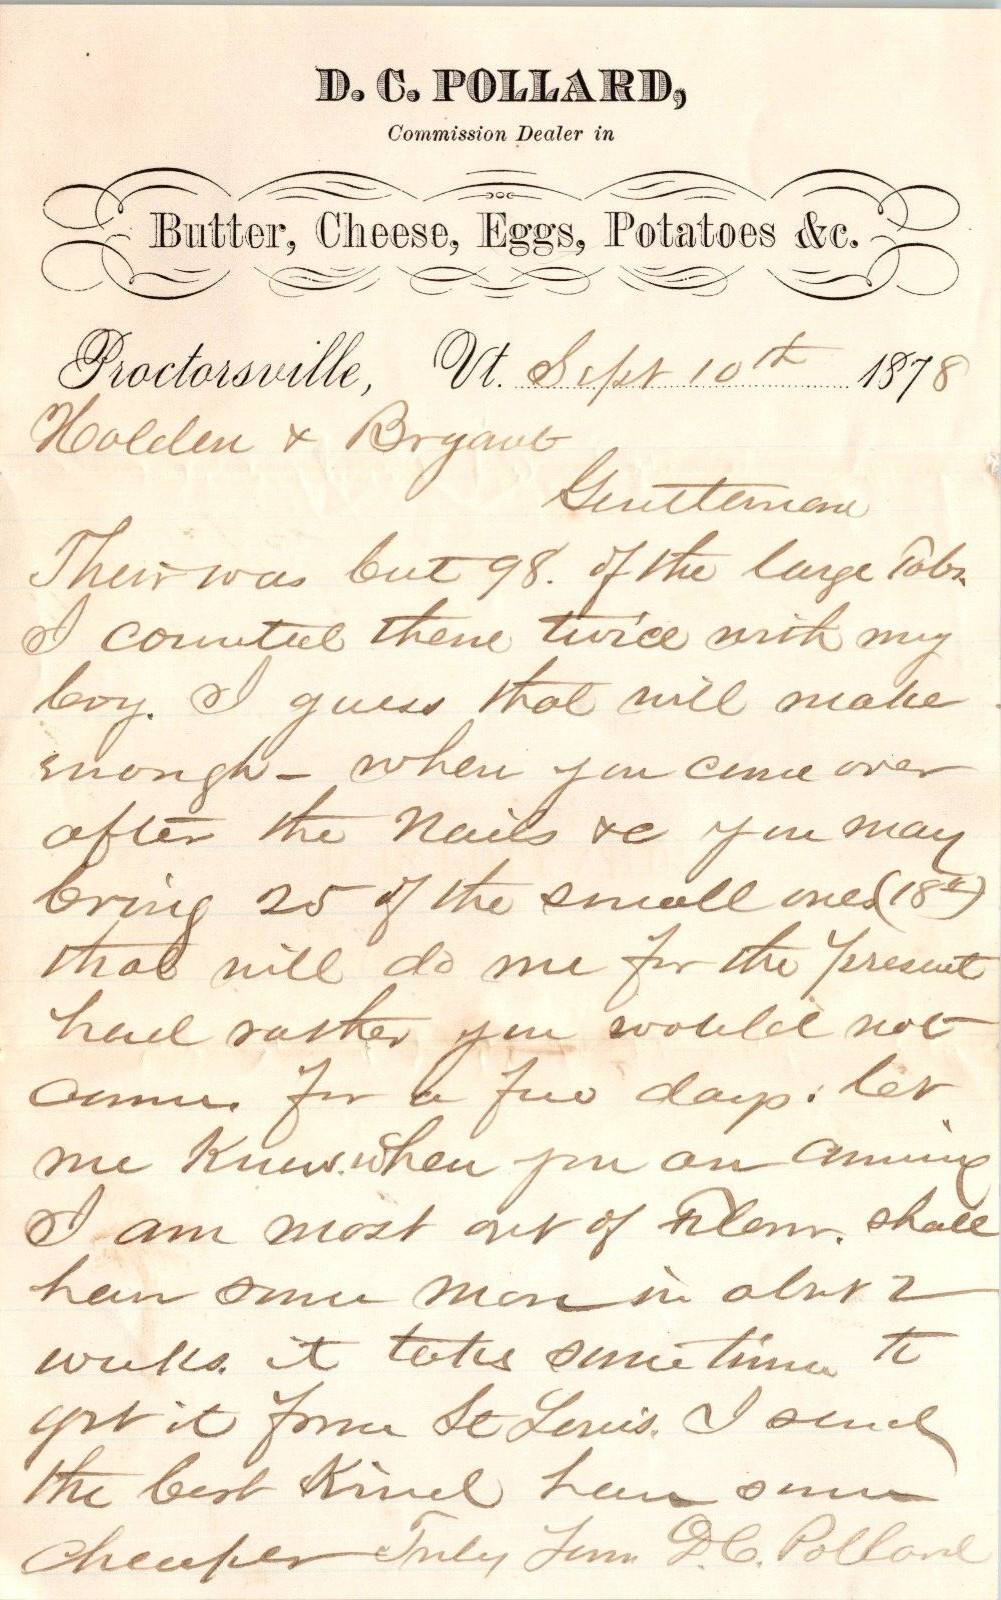 D. C. POLLARD,
Commission Dealer in
Butter, Cheese, Eggs, Potatoes &c.
Proctorsville, Vt. Sept 10th 1878
Holden & Bryant
Gentlemen
Their was but 98. of the large Tubs
I counted them twice with my
boy. I guess that will make
enough – when you come over
after the Nails &c you may
bring 25 of the small ones (18c)
that will do me for the present
had rather you would not
come for a few days. let
me know. when you are coming
I am most out of Flour. shall
have some more in about 2
weeks. it takes sometime to
get it from St Louis. I send
the best Kind have some
cheaper Truly Yours D. C. Pollard